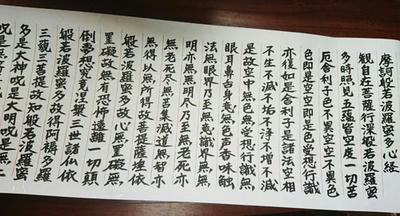 摩訶般若波羅蜜多心経
観自在菩薩行深般若波羅蜜
多時照見五蘊皆空度一切苦
厄舎利子色不異空空不異色
色即是空空即是色受想行識
亦復如是舎利子是諸法空相
不生不滅不垢不浄不増不減
是故空中無色無受想行識無
眼耳鼻舌身意無色声香味触
法無眼界乃至無意識界無無
明亦無無明尽乃至無老死亦
無老死尽無苦集滅道無智亦
無得以無所得故菩提薩埵依
般若波羅蜜多故心無罣礙無
罣礙故無有恐怖遠離一切顛
倒夢想究竟涅槃三世諸仏依
般若波羅蜜多故得阿耨多羅
三藐三菩提故知般若波羅蜜
多是大神呪是大明呪是無上